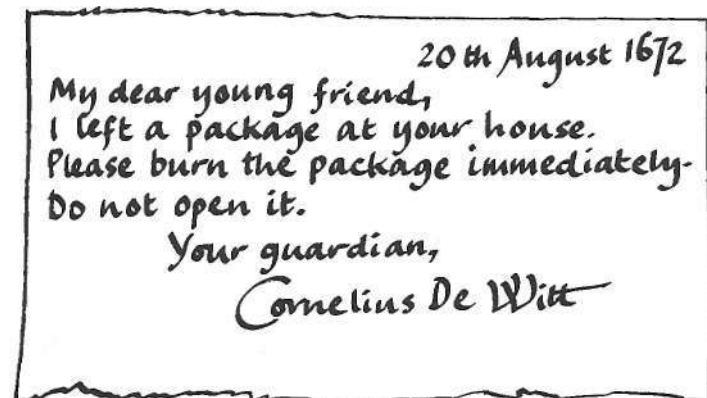 20th August 1672
My dear young friend,
I left a package at your house.
Please burn the package immediately.
Do not open it.
Your guardian,
Cornelius De Witt